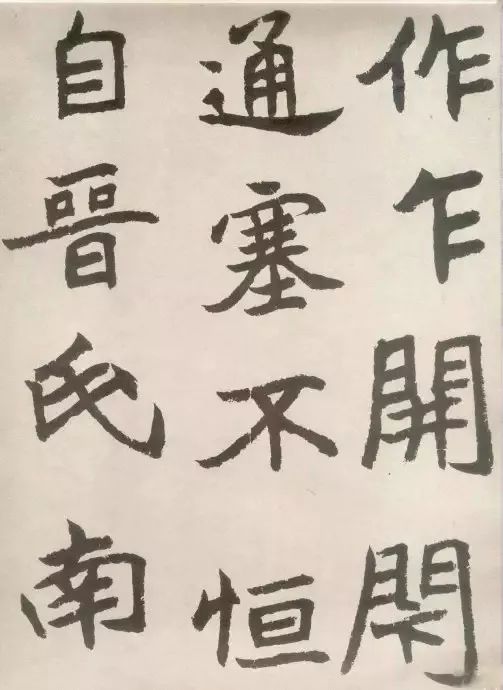 作乍開閇
通塞不恒
自晉氏南